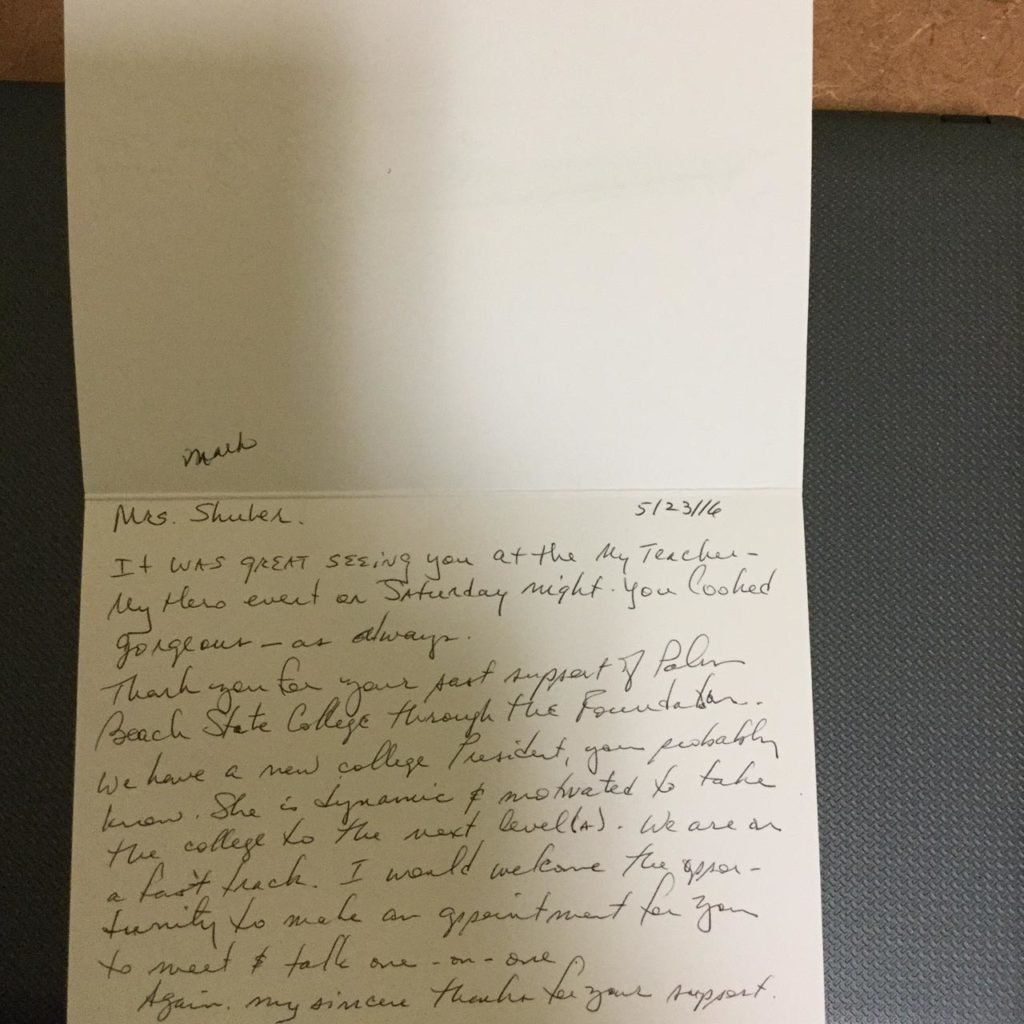 Mark
Mrs. Shuler. 5/23/16
It was great seeing you at the My Teacher-
My Hero event on Saturday night. You looked
gorgeous - as always.
Thank you for your past support of Palm
Beach State College through the Foundation.
We have a new college President, you probably
know. She is dynamic & motivated to take
the college to the next level(s). We are on
a fast track. I would welcome the oppor-
tunity to make an appointment for you
to meet & talk one-on-one.
Again, my sincere thanks for your support.